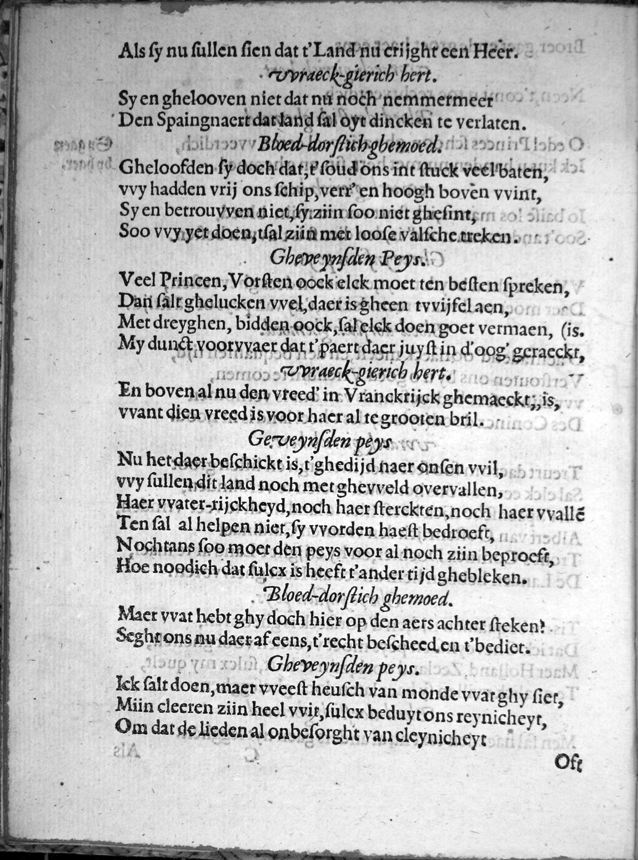 Als sy nu sullen sien dat t'Land nu crijght een Heer.
vvraeck-gierich hert.
Sy en ghelooven niet dat nu noch nemmermeer
Den Spaingnaert dat land sal oyt dincken te verlaten.
Bloed-dorstich ghemoed.
Gheloofden sy doch dat, t'soud ons int stuck veel baten,
vvy hadden vrij ons schip, verr' en hoogh boven vvint,
Sy en betrouvven niet, sy ziin soo niet ghesint,
Soo vvy yet doen, tsal ziin met loose valsche treken.
Gheveynsden Peys.
Veel Princen, Vorsten oock elck moet ten besten spreken,
Dan salt ghelucken vvel, daer is gheen tvvijfel aen,
Met dreyghen, bidden oock, sal elck doen goet vermaen, (is.
My dunct voorvvaer dat t'paert daer juyst in d'oog' geraeckt,
vvraeck-gierich hert.
En boven al nu den vreed' in Vranckrijck ghemaeckt, is,
vvant dien vreed is voor haer al te grooten bril.
Geveynsden peys
Nu het daer beschickt is, t'ghedijd naer onsen vvil,
vvy sullen dit land noch met ghevveld overvallen,
Haer vvater-rijckheyd, noch haer sterckten, noch haer vvallē
Ten sal al helpen niet, sy vvorden haest bedroeft,
Nochtans soo moet den peys voor al noch ziin beproeft,
Hoe noodich dat sulcx is heeft t'ander tijd ghebleken.
Bloed-dorstich ghemoed.
Maer vvat hebt ghy doch hier op den aers achter steken?
Seght ons nu daer af eens, t'recht bescheed, en t'bediet.
Gheveynsden peys.
Ick salt doen, maer vveest heusch van monde vvat ghy siet,
Miin cleeren ziin heel vvit, sulcx beduyt ons reynicheyt,
Om dat de lieden al onbesorght van cleynicheyt
Oft